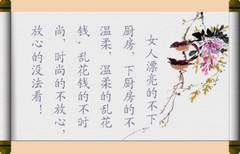 女人漂亮的不下
厨房,下厨房的不
温柔,温柔的乱花
钱,乱花钱的不时
尚,时尚的不放心,
放心的没法看!